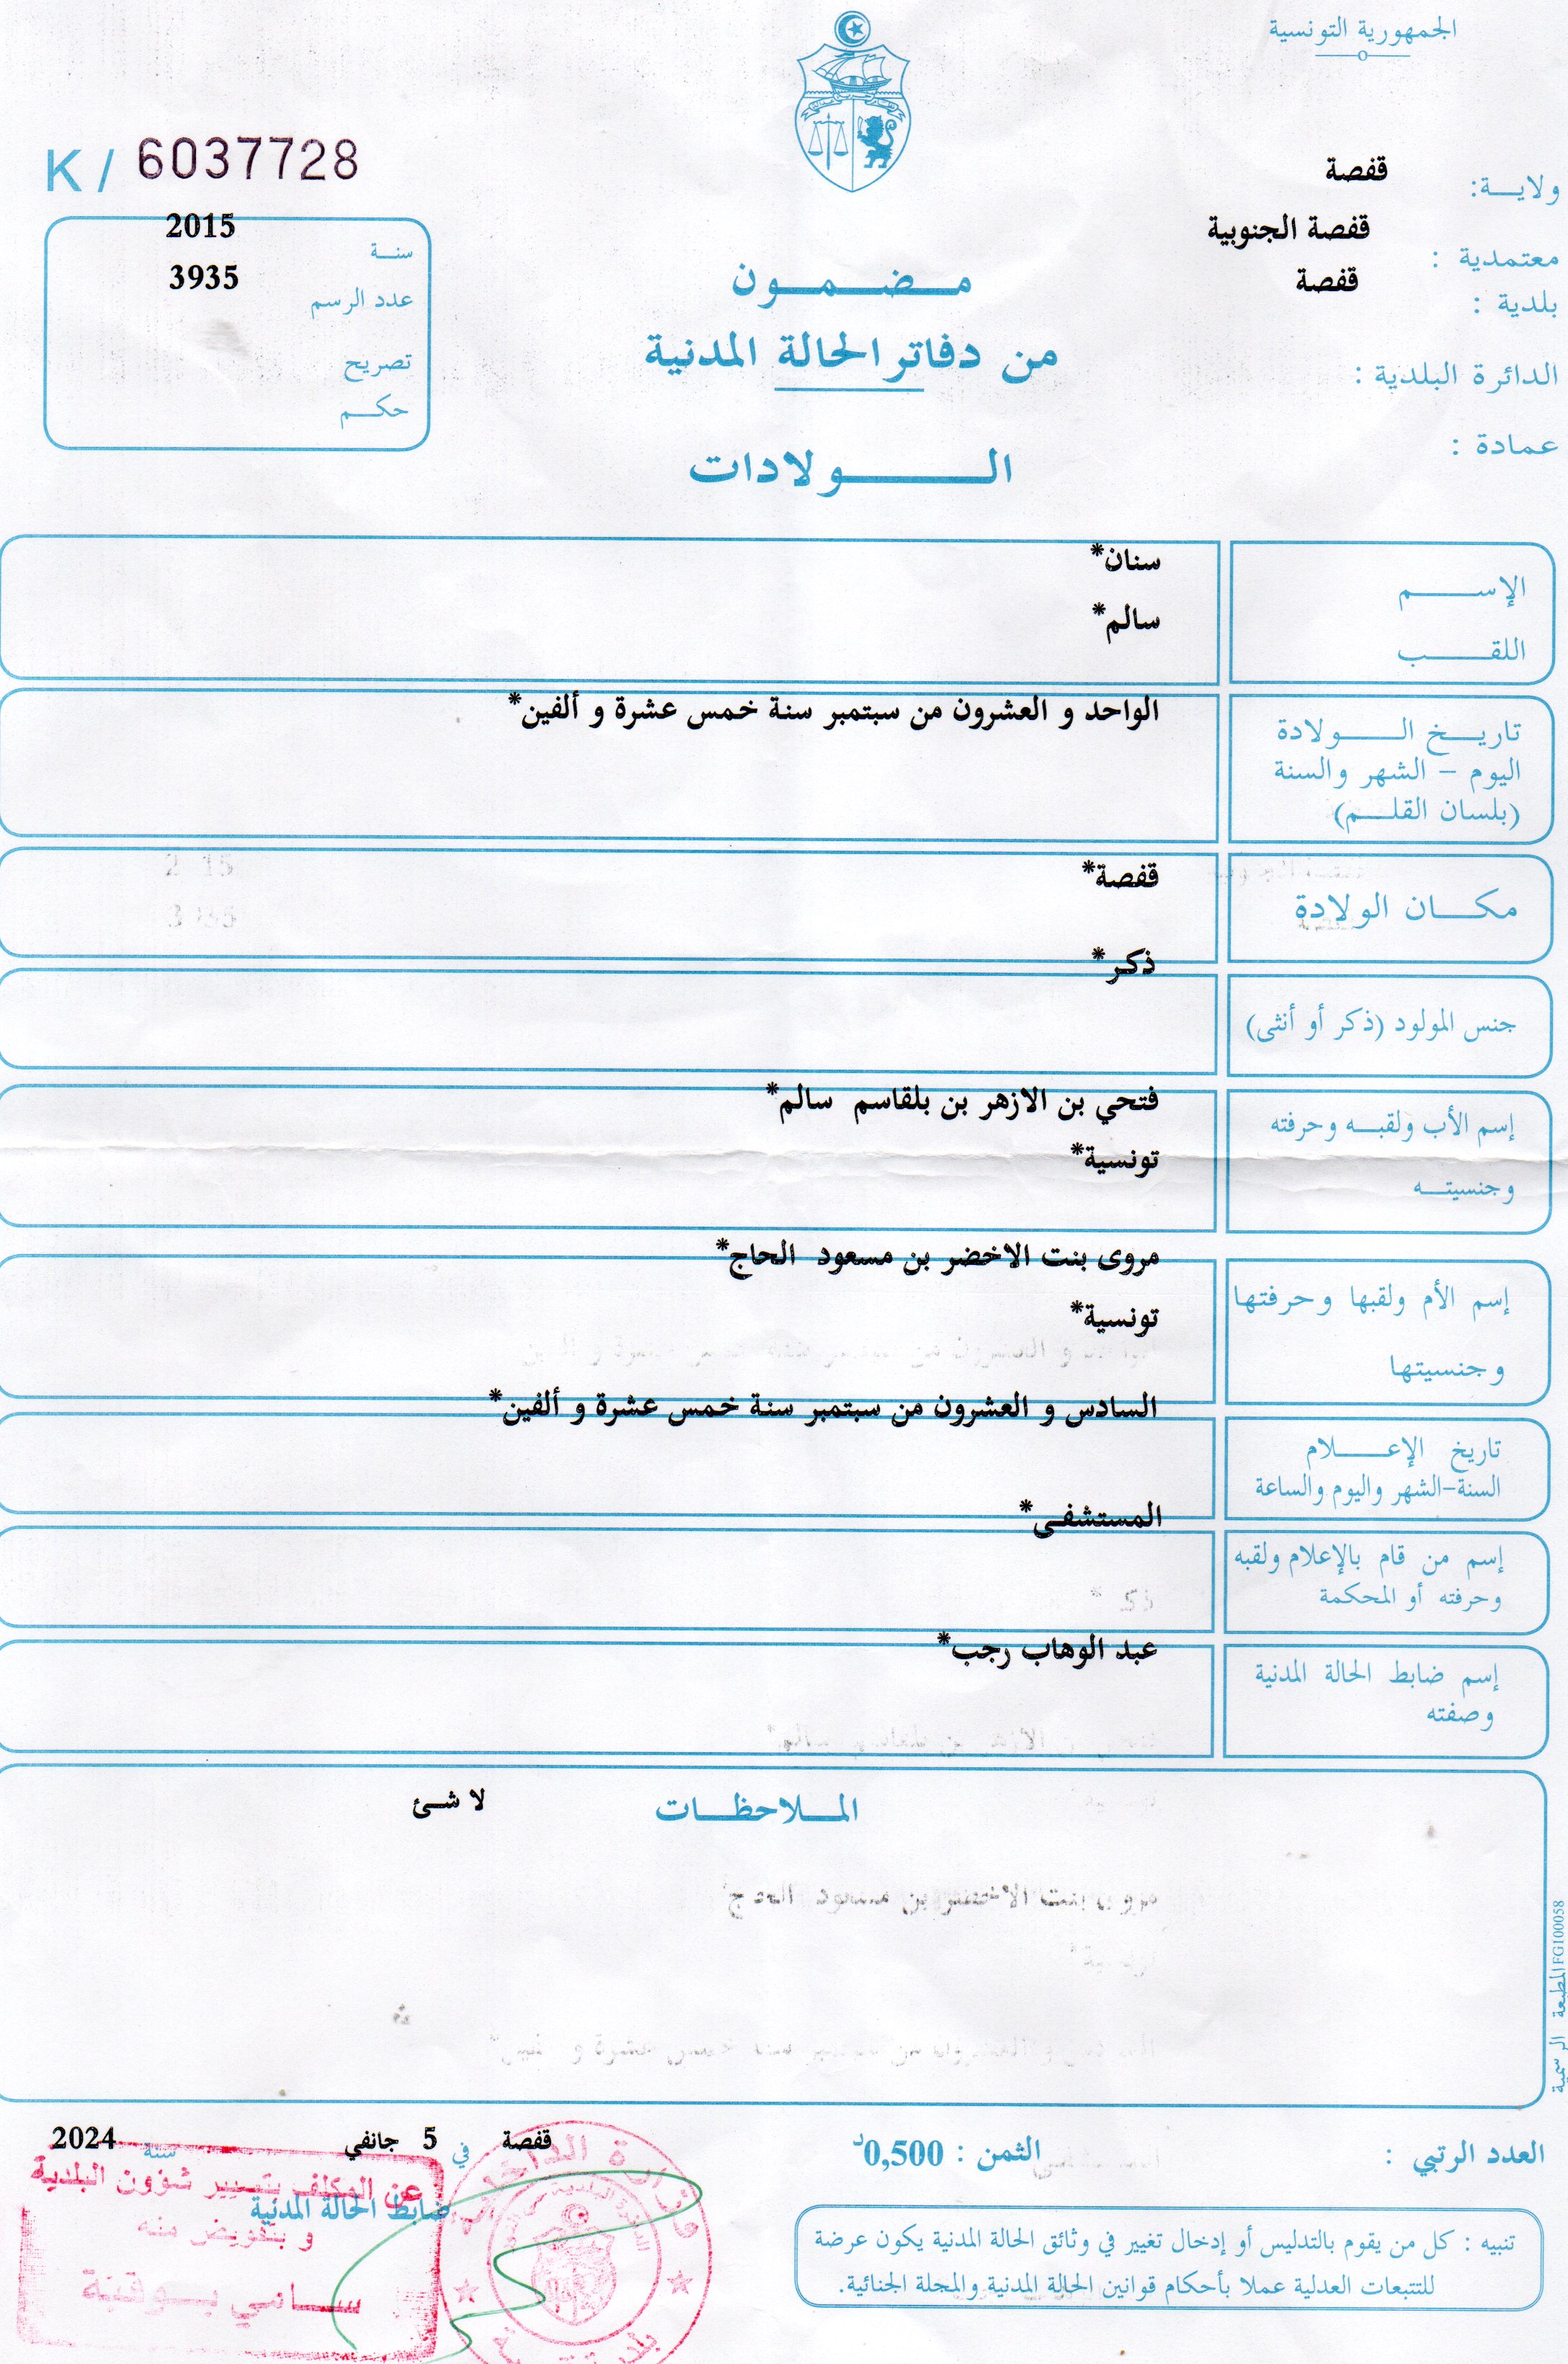 الجمهورية التونسية
K / 6037728
ولايـــة: قفصة
معتمدية : قفصة الجنوبية
بلدية : قفصة
الدائرة البلدية :
عمادة :
سنــة 2015
عدد الرسم 3935
تصريح
حكـــم
مـــضـــمـــون
من دفاتر الحالة المدنية
الـــــــولادات
الإســـــم سنان*
اللقـــــب سالم*
تاريـــخ الـــــولادة
اليوم – الشهر والسنة
(بلسان القلـــم)
الواحد و العشرون من سبتمبر سنة خمس عشرة و ألفين*
مكـــان الولادة قفصة*
جنس المولود (ذكر أو أنثى) ذكر*
إسم الأب ولقبـــه وحرفته فتحي بن الازهر بن بلقاسم سالم*
وجنسيتـــه تونسية*
إسم الأم ولقبها وحرفتها مروى بنت الاخضر بن مسعود الحاج*
وجنسيتها تونسية*
تاريخ الإعـــــلام
السنة-الشهر واليوم والساعة
السادس و العشرون من سبتمبر سنة خمس عشرة و ألفين*
إسم من قام بالإعلام ولقبه
وحرفته أو المحكمة
المستشفى*
إسم ضابط الحالة المدنية
وصفته
عبد الوهاب رجب*
المـــلاحظـــات لا شئ
المطبعة الرسمية FG100058
العدد الرتبي :
الثمن : 0,500د
قفصة في 5 جانفي سنة 2024
ضابط الحالة المدنية
عن المكلف بتسيير شؤون البلدية
و بتفويض منه
سامي بوقنة
وزارة الداخلية
تنبيه : كل من يقوم بالتدليس أو إدخال تغيير في وثائق الحالة المدنية يكون عرضة
للتتبعات العدلية عملا بأحكام قوانين الحالة المدنية والمجلة الجنائية.